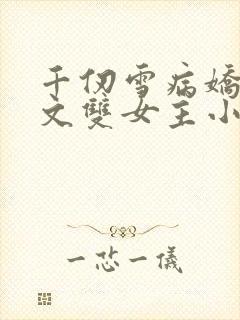 千仞雪病嬌
文雙女主小
一芯一儀